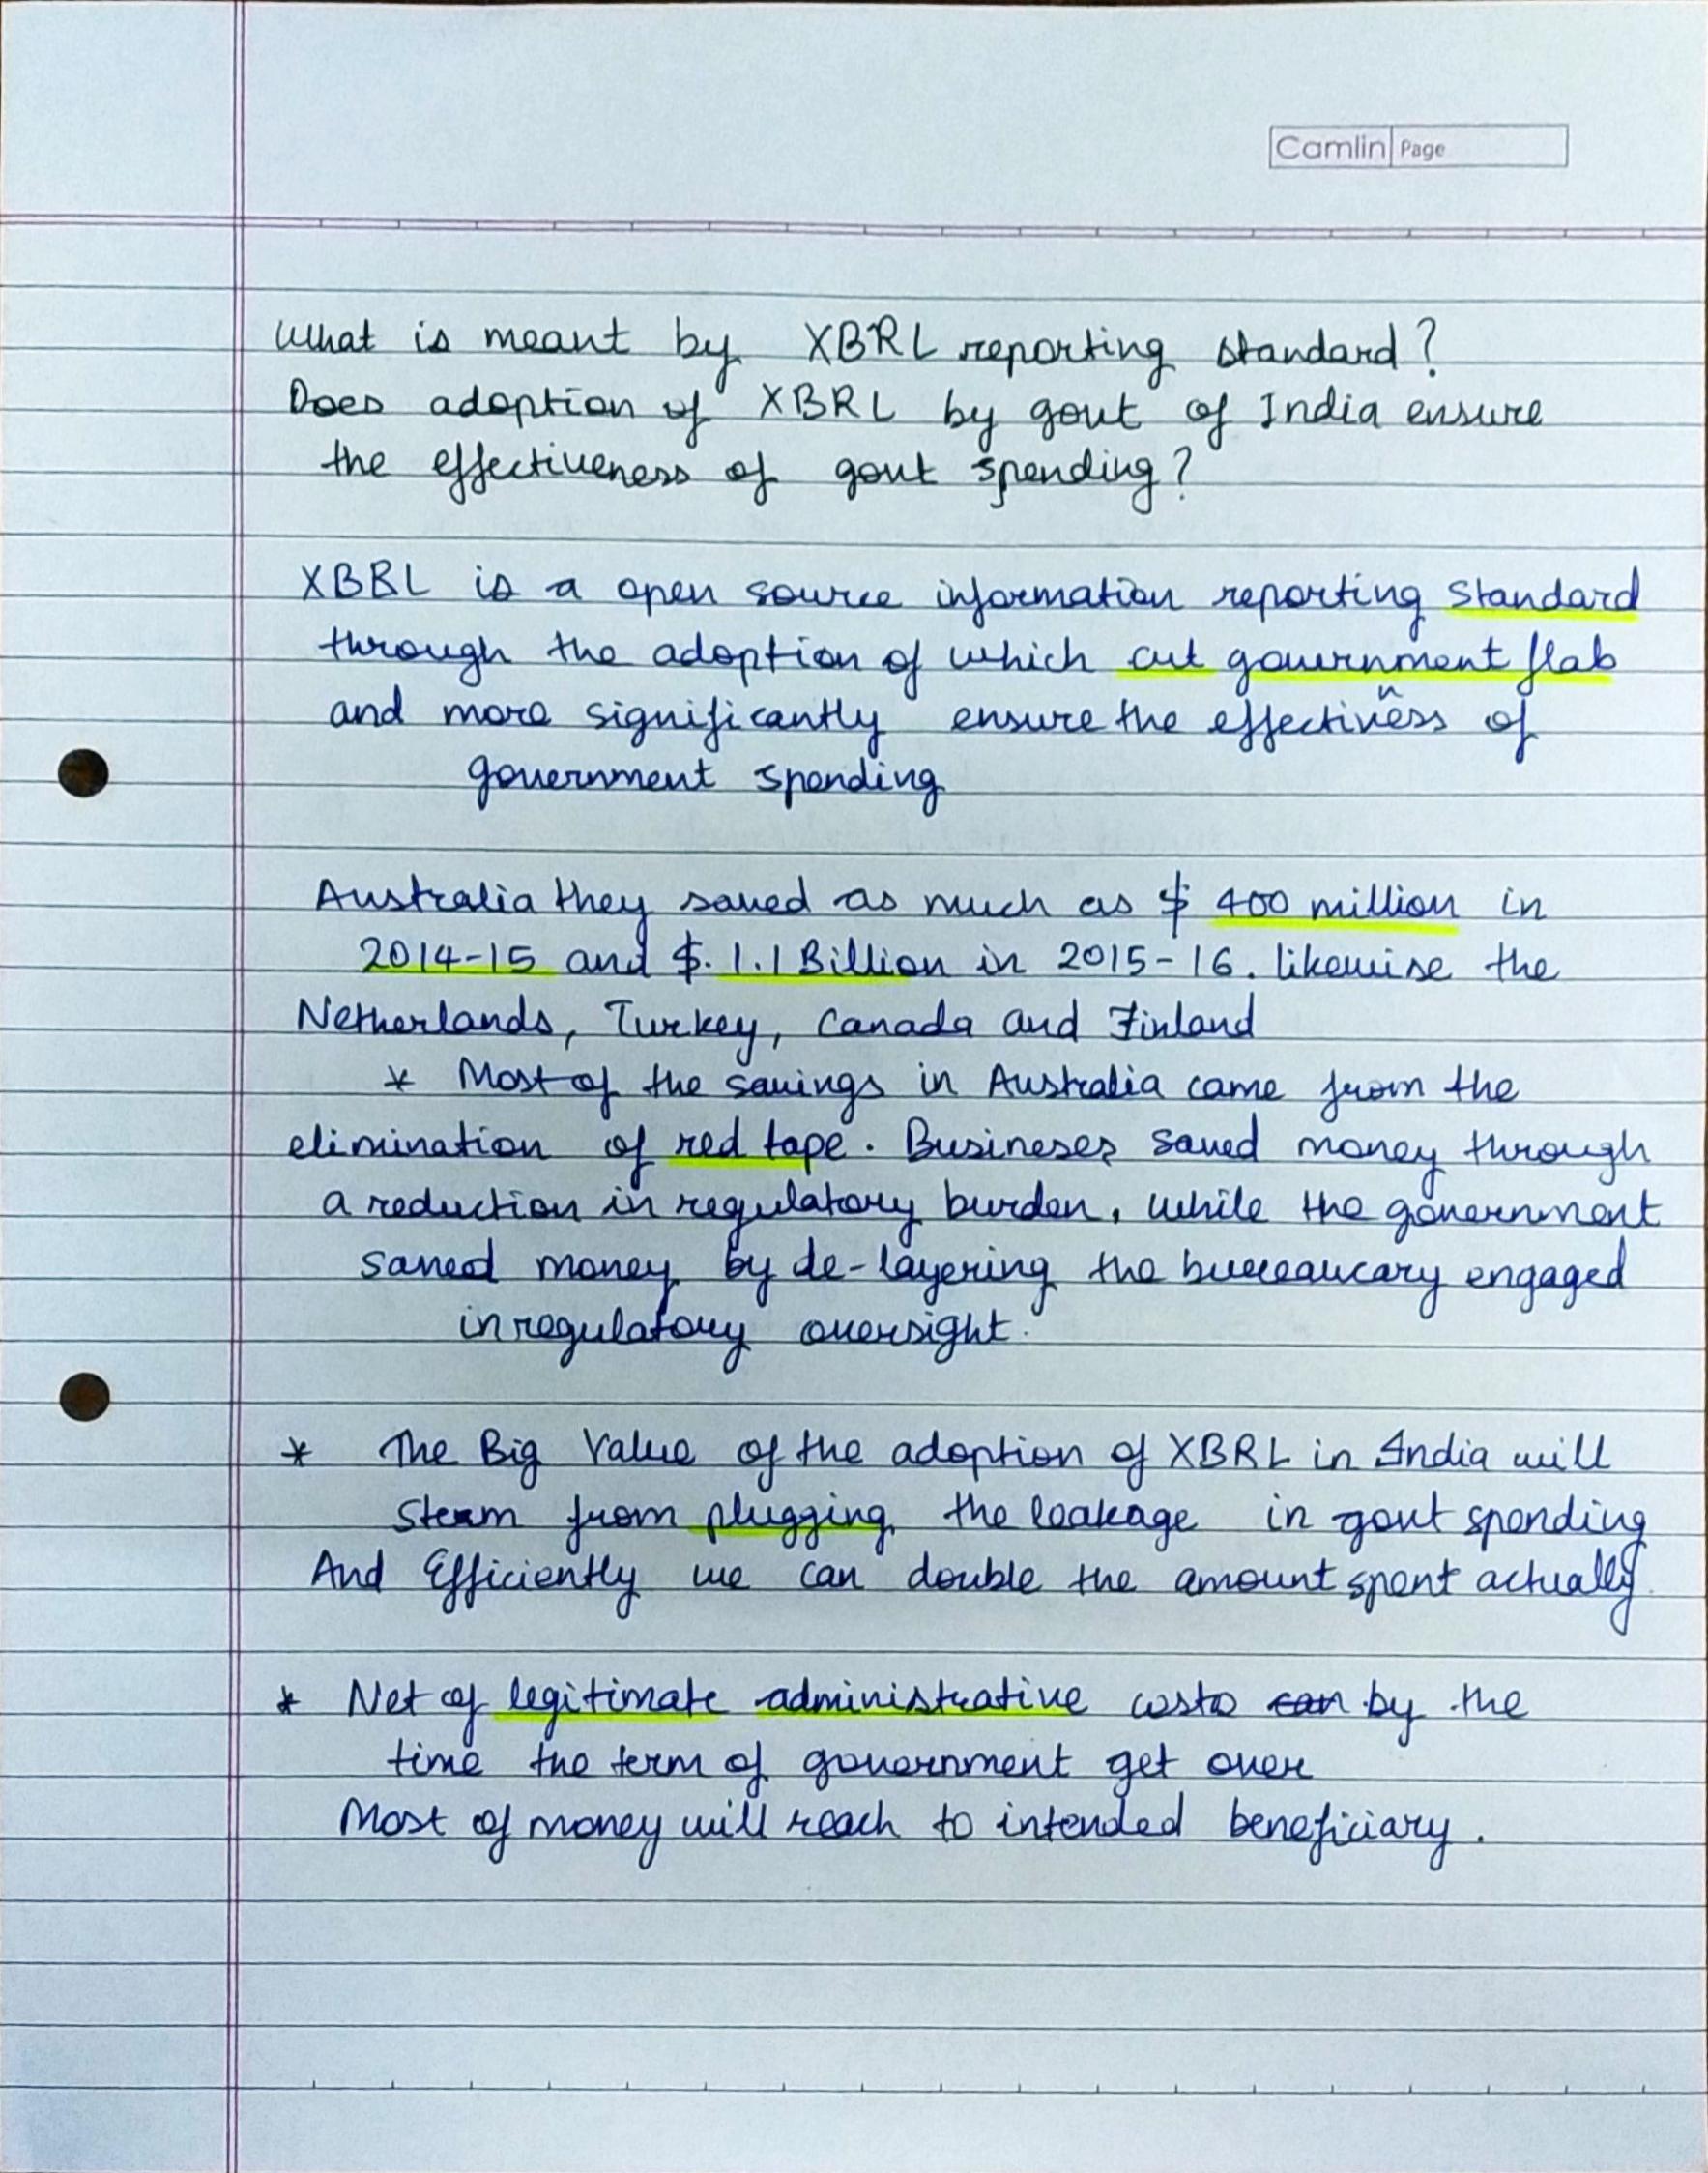 Camlin Page
What is meant by XBRL reporting standard?
Does adoption of XBRL by govt of India ensure
the effectiveness of govt spending?
XBBL is a open source information reporting standard
through the adoption of which cut government flab
and more significantly ensure the effectiveness of
government spending
Australia they saved as much as $ 400 million in
2014-15 and $. 1.1 Billion in 2015-16. likewise the
Netherlands, Turkey, Canada and Finland
* Most of the savings in Australia came from the
elimination of red tape. Busineses saved money through
a reduction in regulatory burden, while the government
saved money by de-layering the bureaucary engaged
in regulatory oversight.
* The Big Value of the adoption of XBRL in India will
steam from plugging the leakage in govt spending
And Efficiently we can double the amount spent actually.
* Net of legitimate administrative costs can by the
time the term of government get over
Most of money will reach to intended beneficiary.